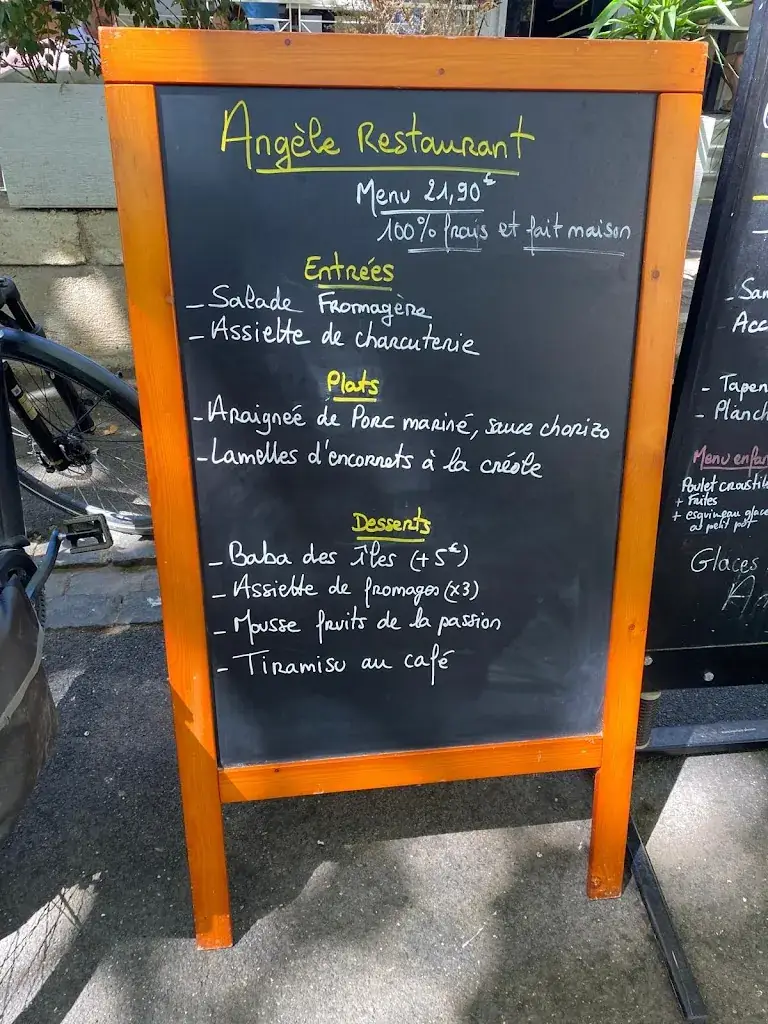 Angèle Restaurant
Menu 21,90€
100% frais et fait maison
Entrées
- Salade Fromagère
- Assiette de charcuterie
Plats
- Araignée de Porc mariné, sauce chorizo
- Lamelles d'encornets à la créole
Desserts
- Baba des îles (+5€)
- Assiette de fromages (x3)
- Mousse fruits de la passion
- Tiramisu au café
- San
Acc
- Tapen
- Planch
Menu enfan
Poulet croustill
+ Frites
+ esquimeau glace
ou petit pot
Glaces